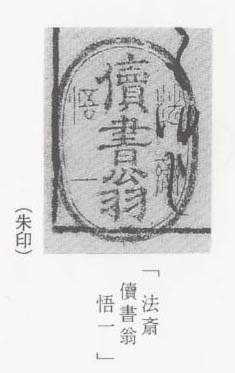 儥書翁
「法斎
儥書翁
悟一」
(朱印)